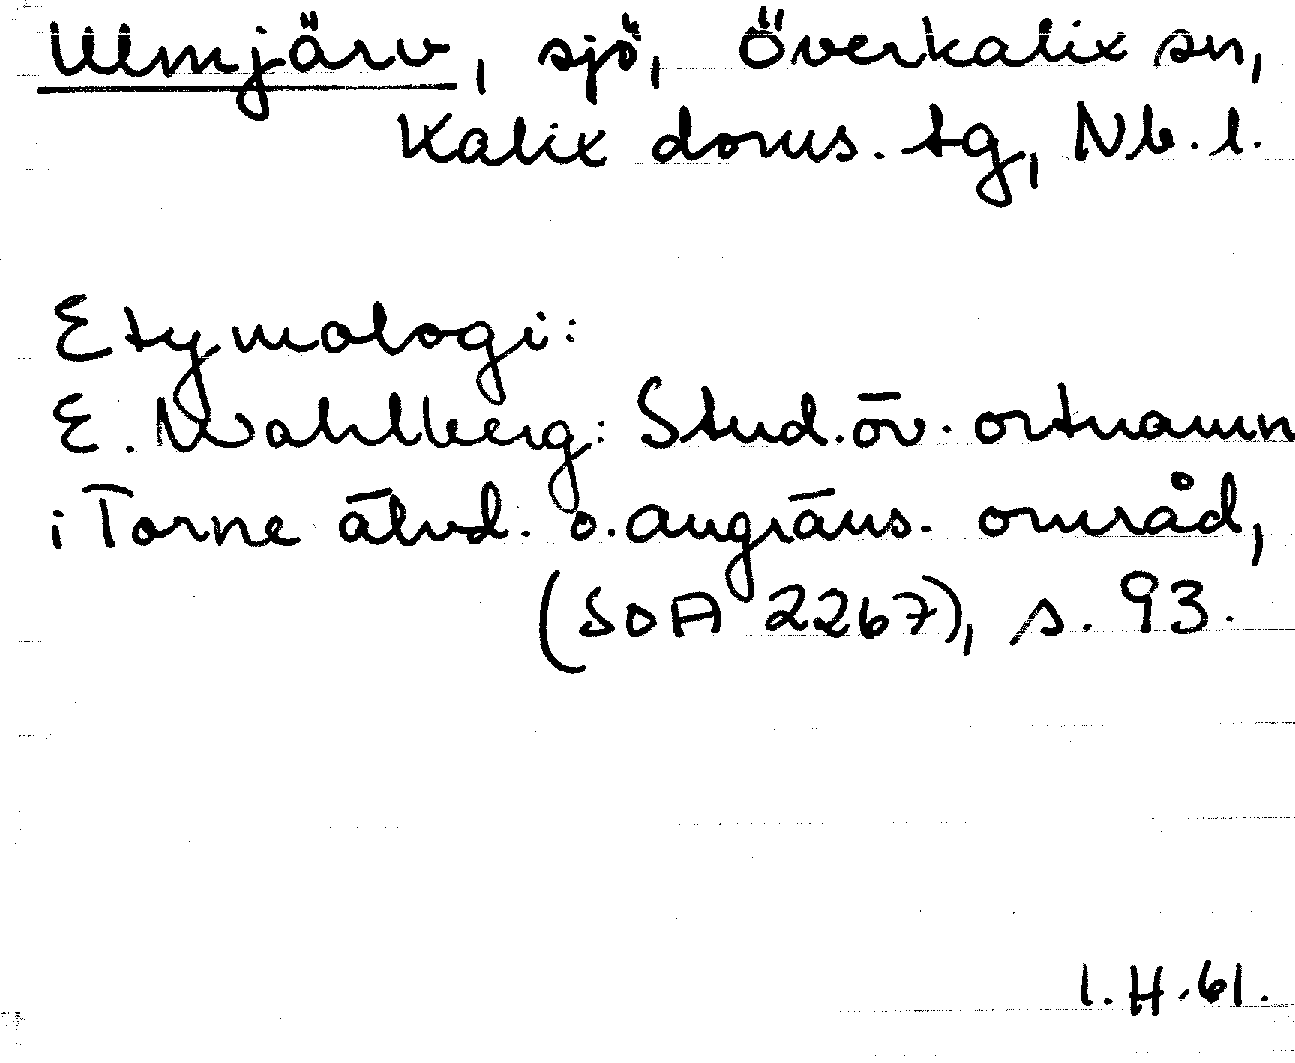 Ulmjärv, sjö, Överkalix sn,
Kalix doms. tg, Nb. l.
Etymologi:
E. Wahlberg: Stud. öv. ortnamn
i Torne älvd. o. angräns. område,
(SOA 2267), s. 93.
I. H. 61.